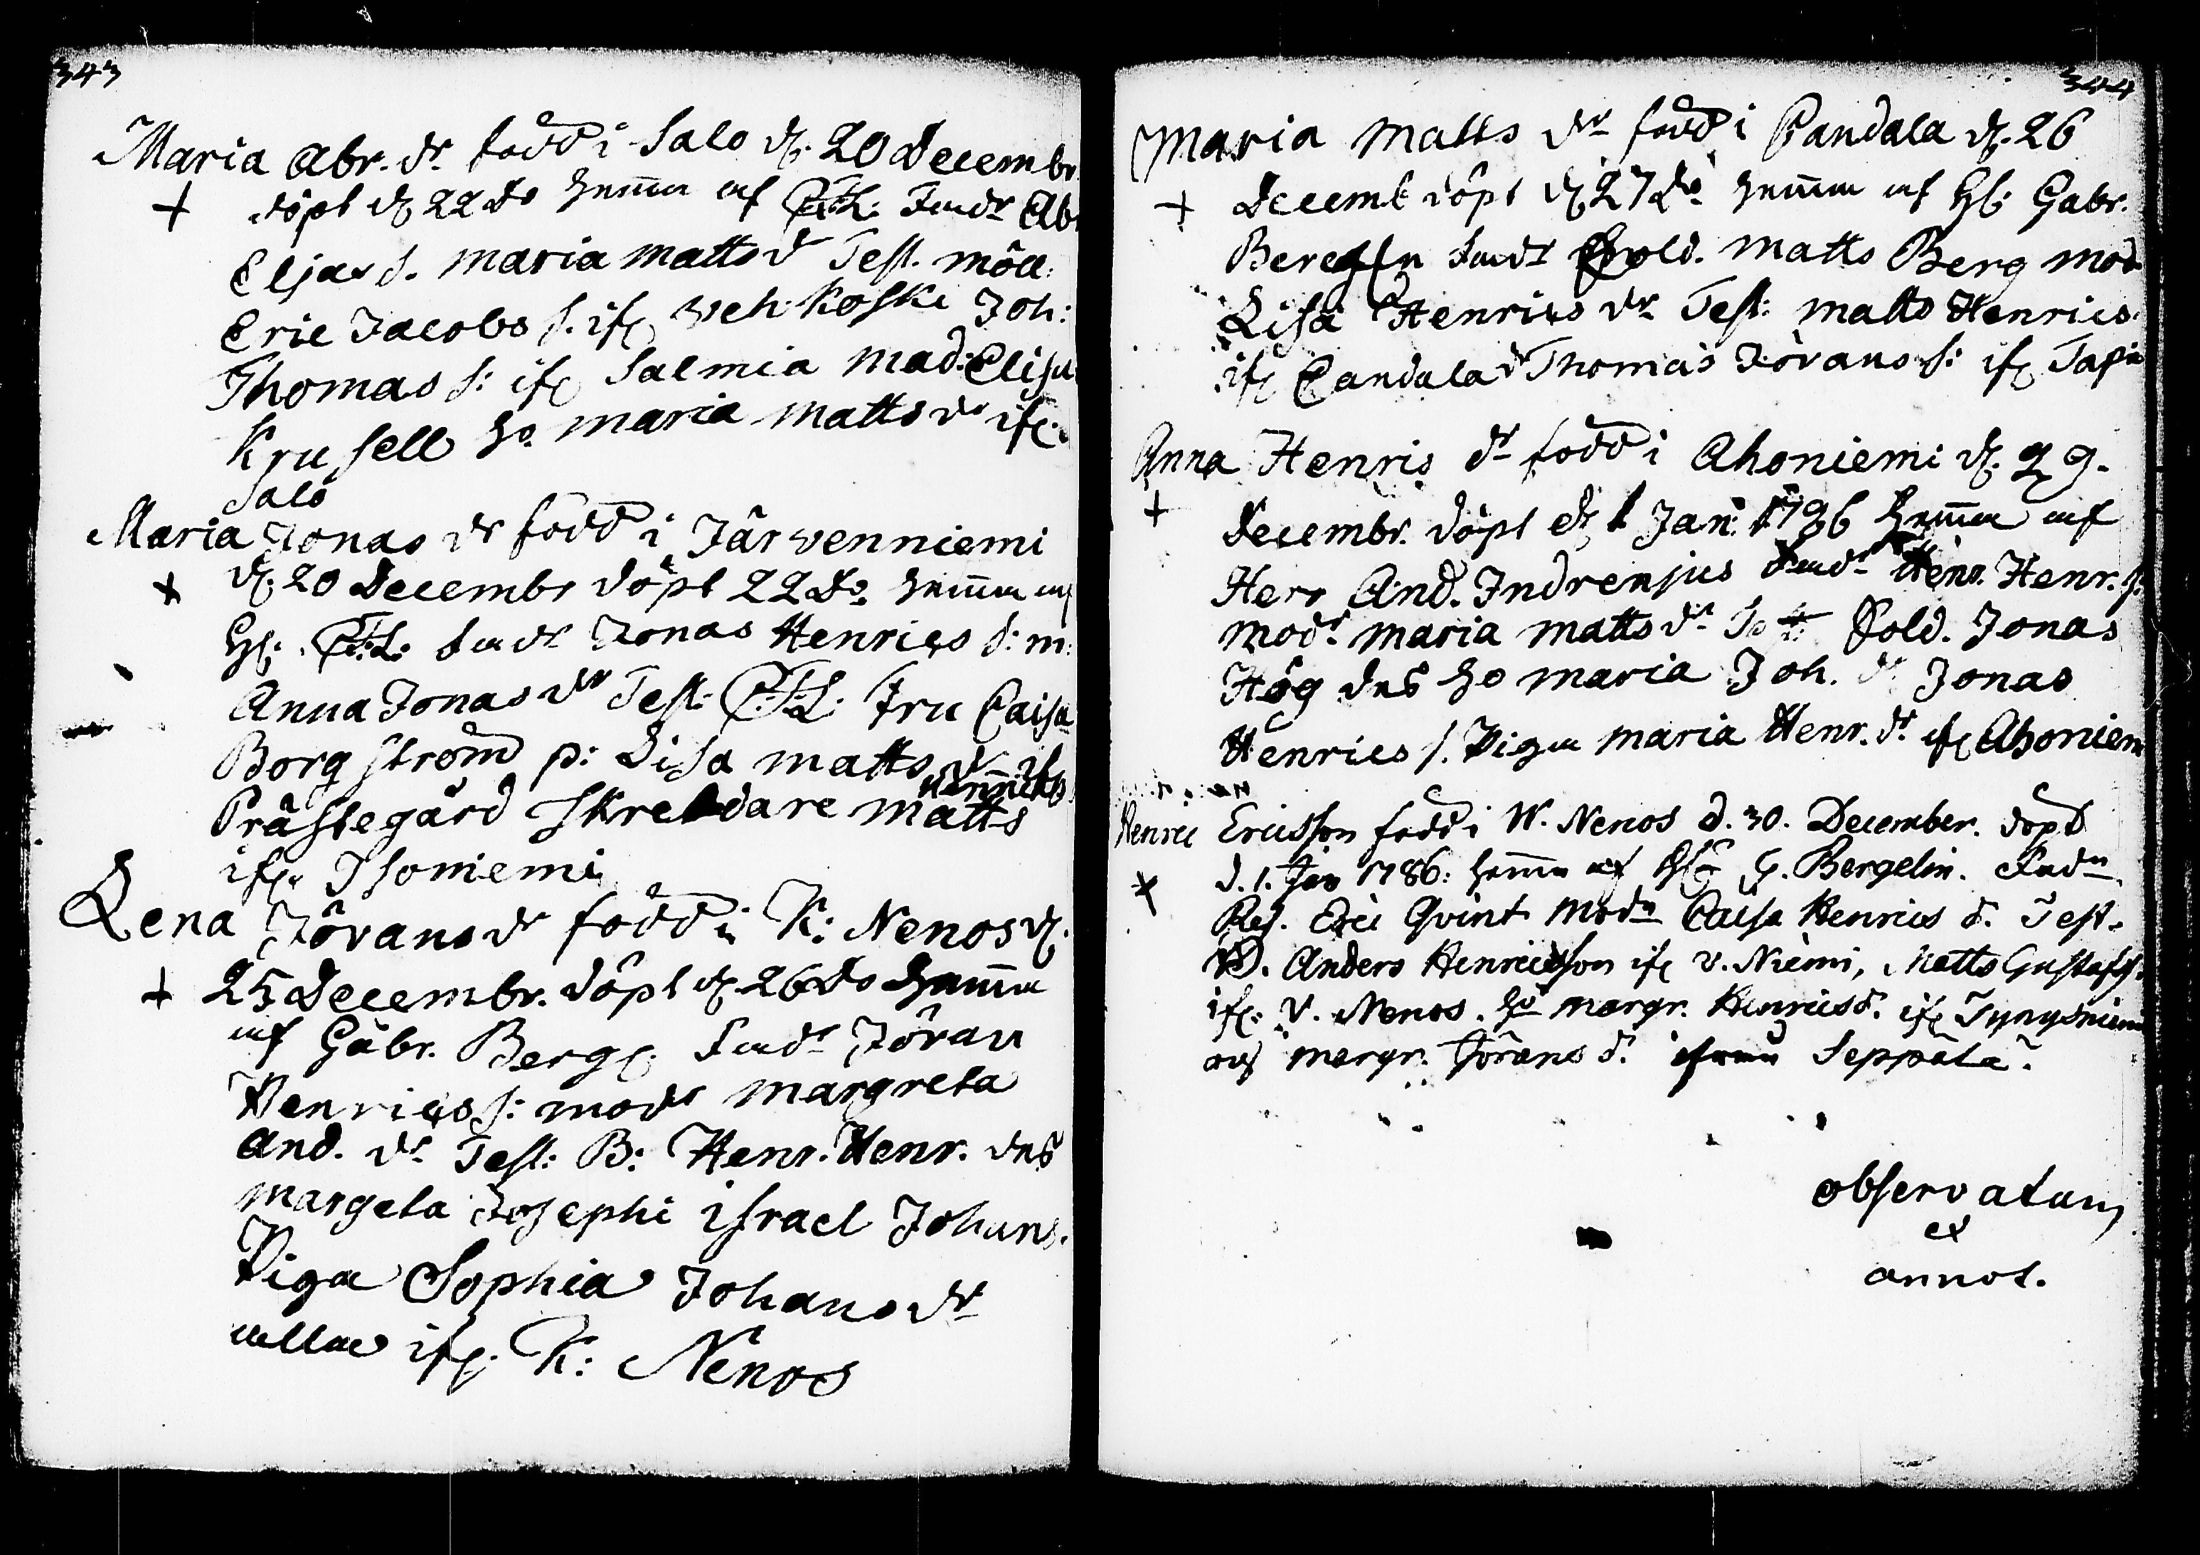 343
Maria Abr. dr född i Salo d. 20 Decembr
+ döpt d 22 do hemma af Fadr Abr
Eljas s. Maria Matts dr Test. möll:
Eric Jacobs s. ifr. Wehkoski Joh:
Thomas s: ifr Salmia Mad: Elisa
Krusell ho Maria Matts dr ifr.
Salo
Maria Jonas dr född i Järvenniemi
+ d. 20 Decembr döpt 22 do hemma af
Fadr Jonas Henrics s: m:
Anna Jonas dr Test: Fru Caisa
Borgström p: Lisa Matts dr if
Henricks
Prästegård Skreddare Matts
ifr. Isoniemi
Lena Jörans dr född i K: Nenos d.
+ 25 Decembr. döpt d 26 do hemma
af Gabr. Berg. Fadr Jöran
Henrics s: modr Margreta
And. dr Test: B: Henr. Henr. des
Margeta Josephi Israel Johans.
Piga Sophia Johans dr
alla ifr. K: Nenos
344
Maria Matts dr född i Pandala d. 26
+ Decemb döpt d 27 do hemma af H: Gabr.
Bereglin Fadr Sold. Matts Berg mod
Lisa Henrics dr Test: Matts Henrics.
ifr Pandala Thomas Jörans s: ifr Tapia
Anna Henris dr född i Ahoniemi d. 29.
+ Decembr. döpt d 1 Jan: 1786 hemma af
Herr And. Indrenjus Fadr Henr. Henr. s.
Modr. Maria Matts dr Sold. Jonas
Hög des ho Maria Joh. dr Jonas
Henrics s. Piga Maria Henr. dr ifr Ahoniem
Henric Ericsson född i W. Nenos d. 30. December. döpt
+ d. 1. Jan 1786: hemma af G. Bergelin. Fadn
Eric Qvint Modn Caisa Henrics d. Test.
B. Anders Henricsson ifr v. Niemi, Matts Gustafss.
ifr. V. Nenos. ho Margr. Henricsd. ifr Tynysniemi
och Margr. Jörans d. ifrån Seppälä.
observatum
et
annot.